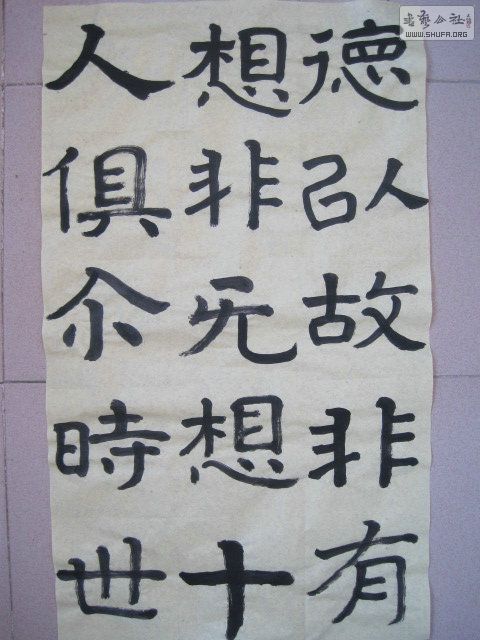 徳以故非有
想非无想十
人俱尒時世
書藝公社
WWW.SHUFA.ORG